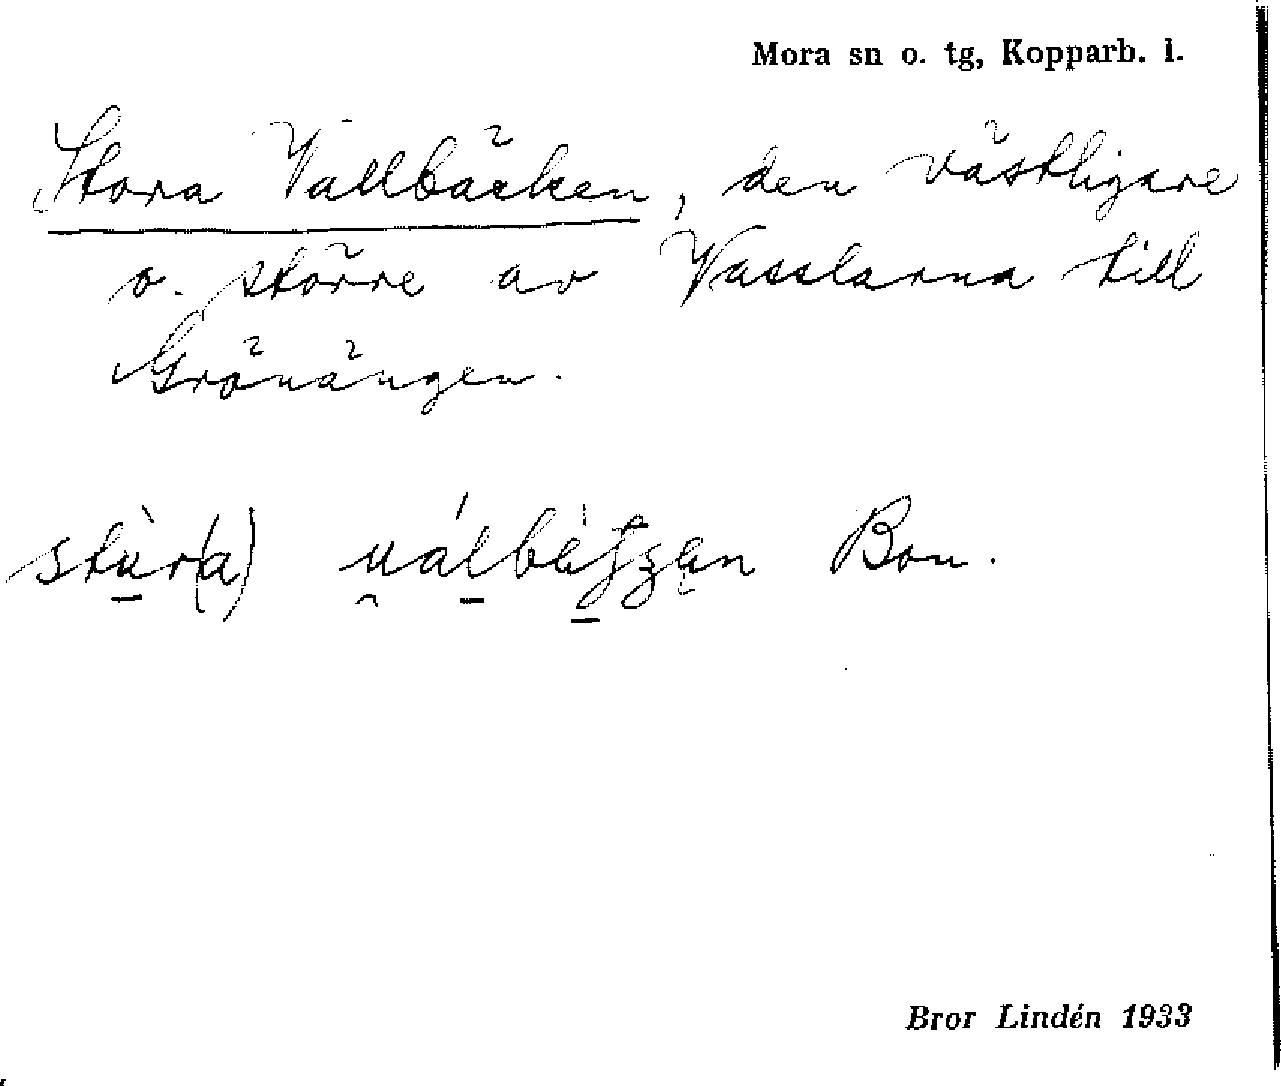 Mora sn o. tg, Kopparb. l.
Stora Vallbäcken, den västligare
o. större av Vasslarna till
Grönängen.
stùr(a) Bon.
Bror Lindén 1933